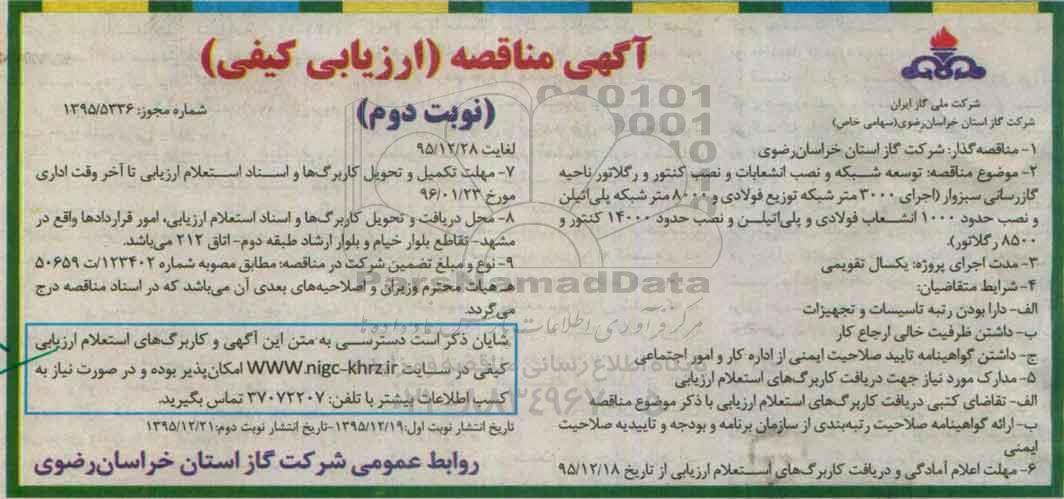 آگهی مناقصه (ارزیابی کیفی)
(نوبت دوم)
شماره مجوز: ۱۳۹۵/۵۳۳۶
شرکت ملی گاز ایران
شرکت گاز استان خراسان‌رضوی(سهامی خاص)
۱- مناقصه‌گذار: شرکت گاز استان خراسان‌رضوی
۲- موضوع مناقصه: توسعه شبکه و نصب انشعابات و نصب کنتور و رگلاتور ناحیه
گازرسانی سبزوار (اجرای ۳۰۰۰ متر شبکه توزیع فولادی و ۸۰۰۰ متر شبکه پلی‌اتیلن
و نصب حدود ۱۰۰۰ انشعاب فولادی و پلی‌اتیلن و نصب حدود ۱۴۰۰۰ کنتور و
۸۵۰۰ رگلاتور).
۳- مدت اجرای پروژه: یکسال تقویمی
۴- شرایط متقاضیان:
الف- دارا بودن رتبه تاسیسات و تجهیزات
ب- داشتن ظرفیت خالی ارجاع کار
ج- داشتن گواهینامه تایید صلاحیت ایمنی از اداره کار و امور اجتماعی
۵- مدارک مورد نیاز جهت دریافت کاربرگ‌های استعلام ارزیابی
الف- تقاضای کتبی دریافت کاربرگ‌های استعلام ارزیابی با ذکر موضوع مناقصه
ب- ارائه گواهینامه صلاحیت رتبه‌بندی از سازمان برنامه و بودجه و تاییدیه صلاحیت
ایمنی
۶- مهلت اعلام آمادگی و دریافت کاربرگ‌های استعلام ارزیابی از تاریخ ۹۵/۱۲/۱۸
لغایت ۹۵/۱۲/۲۸
۷- مهلت تکمیل و تحویل کاربرگ‌ها و اسناد استعلام ارزیابی تا آخر وقت اداری
مورخ ۹۶/۰۱/۲۳
۸- محل دریافت و تحویل کاربرگ‌ها و اسناد استعلام ارزیابی، امور قراردادها واقع در
مشهد- تقاطع بلوار خیام و بلوار ارشاد طبقه دوم- اتاق ۲۱۲ می‌باشد.
۹- نوع و مبلغ تضمین شرکت در مناقصه: مطابق مصوبه شماره ۱۲۳۴۰۲/ت ۵۰۶۵۹
هـ هیات محترم وزیران و اصلاحیه‌های بعدی آن می‌باشد که در اسناد مناقصه درج
می‌گردد.
شایان ذکر است دسترسی به متن این آگهی و کاربرگ‌های استعلام ارزیابی
کیفی در سایت WWW.nigc-khrz.ir امکان‌پذیر بوده و در صورت نیاز به
کسب اطلاعات بیشتر با تلفن: ۳۷۰۷۲۲۰۷ تماس بگیرید.
تاریخ انتشار نوبت اول: ۱۳۹۵/۱۲/۱۹-تاریخ انتشار نوبت دوم: ۱۳۹۵/۱۲/۲۱
روابط عمومی شرکت گاز استان خراسان‌رضوی